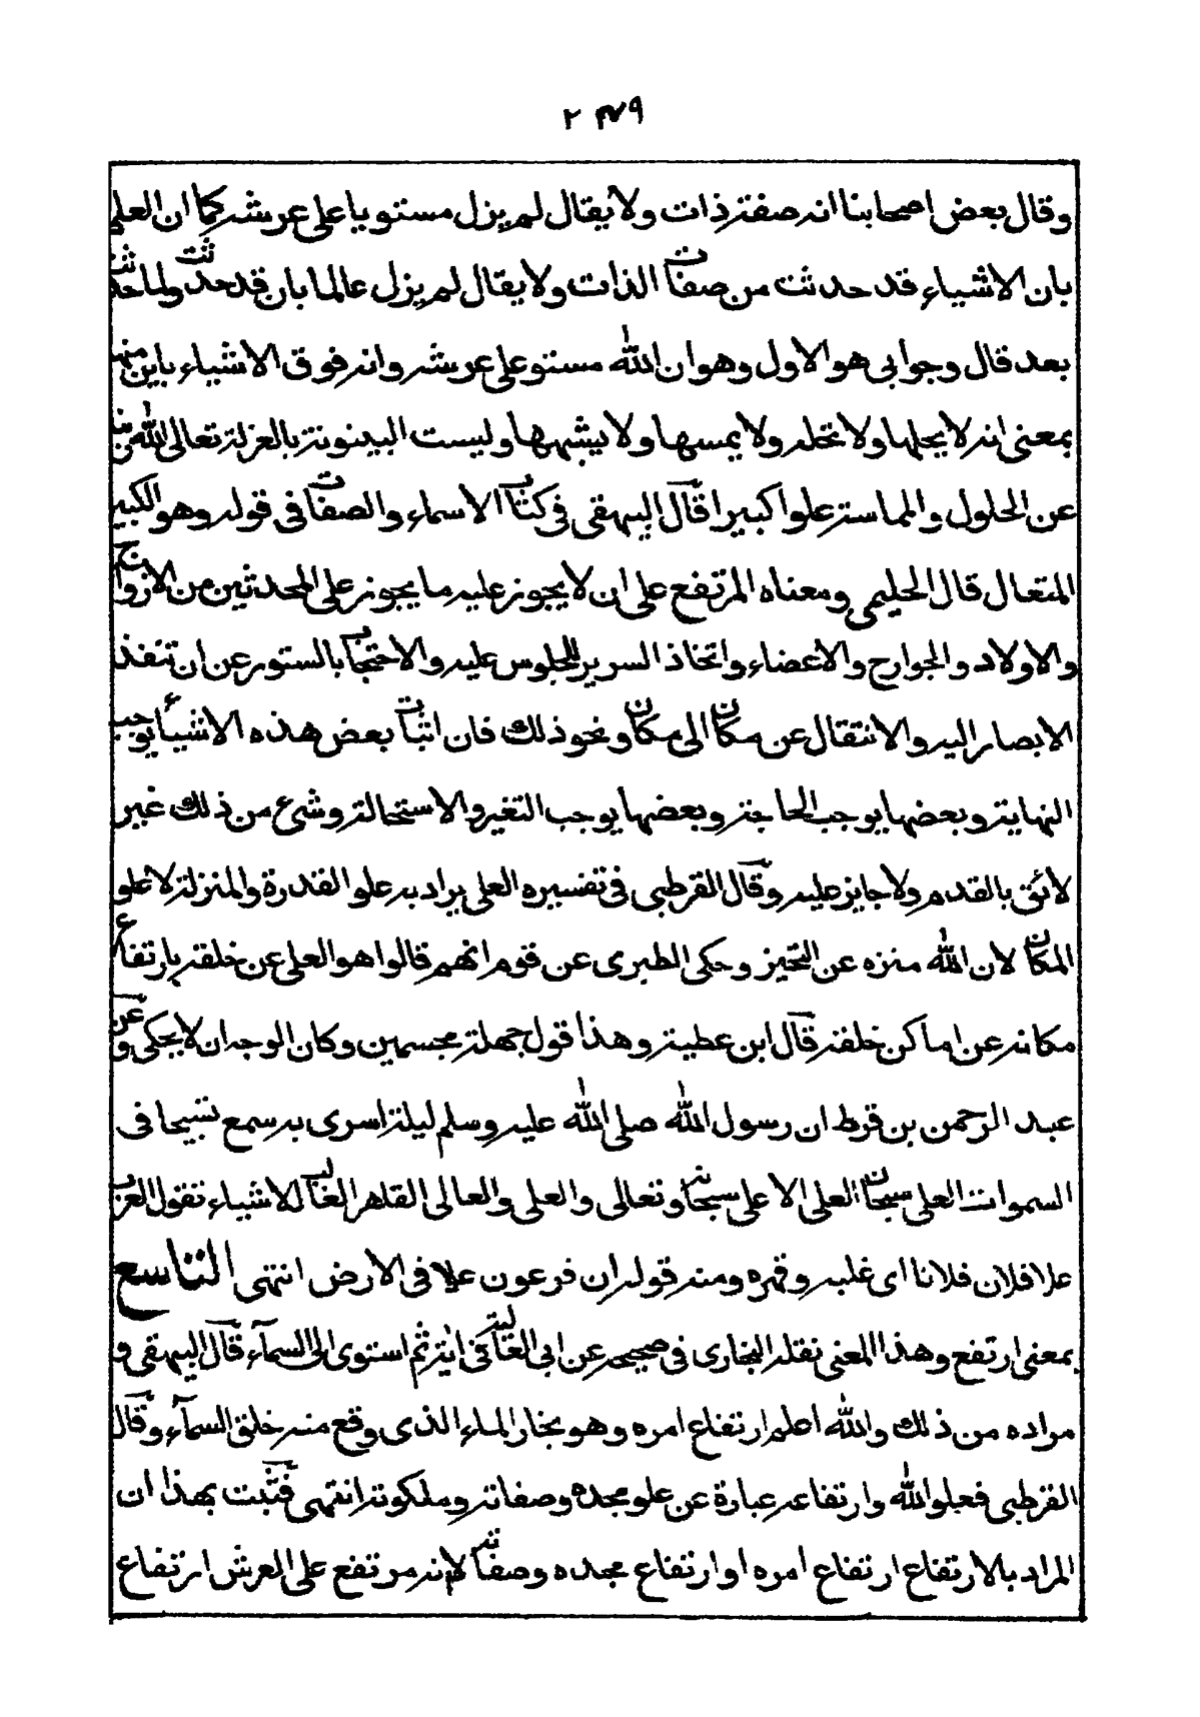 ٢٤٩
وقال بعض اصحابنا انه صفة ذات ولا يقال لم يزل مستويا على عرشه كما ان العلم
بان الاشياء قد حدثت من صفات الذات ولا يقال لم يزل عالما بان قد حدثت ولما حدثت
بعد قال وجوابى هو الاول وهو ان الله مستو على عرشه وانه فوق الاشياء باين منها
بمعنى انه لا يحلها ولا تحله ولا يمسها ولا يشبهها وليست البينونة بالعزلة تعالى الله ربنا
عن الحلول والمماسة علوا كبيرا قال البيهقى فى كتاب الاسماء والصفات فى قوله وهو الكبير
المتعال قال الحليمى ومعناه المرتفع على ان لا يجوز عليه ما يجوز على المحدثين من الازواج
والاولاد والجوارح والاعضاء واتخاذ السرير للجلوس عليه والاحتجاب بالستور عن ان تنفذ
الابصار اليه والانتقال عن مكان الى مكان ونحو ذلك فان اثبات بعض هذه الاشياء يوجب
النهاية وبعضها يوجب الحاجة وبعضها يوجب التغير والاستحالة وشئ من ذلك غير
لائق بالقدم ولا جايز عليه وقال القرطبى فى تفسيره العلى يراد به علو القدرة والمنزلة لا علو
المكان لان الله منزه عن التحيز وحكى الطبرى عن قوم انهم قالوا هو العلى عن خلقه بارتفاع
مكانه عن اماكن خلقه قال ابن عطية وهذا قول جهلة مجسمين وكان الوجه ان لا يحكى وعن
عبد الرحمن بن قرط ان رسول الله صلى الله عليه وسلم ليلة اسرى به سمع تسبيحا فى
السموات العلى سبحان العلى الاعلى سبحانه وتعالى والعلى والعالى القاهر الغالب للاشياء تقول العرب
علا فلان فلانا اى غلبه وقهره ومنه قوله ان فرعون علا فى الارض انتهى التاسع
بمعنى ارتفع وهذا المعنى نقله البخارى فى صحيحه عن ابى العالية فى اية ثم استوى الى السماء قال البيهقى و
مراده من ذلك والله اعلم ارتفاع امره وهو بخار الماء الذى وقع منه خلق السماء وقال
القرطبى فعلو الله وارتفاعه عبارة عن علو مجده وصفاته وملكوته انتهى فثبت بهذا ان
المراد بالارتفاع ارتفاع امره او ارتفاع مجده وصفاته لانه مرتفع على العرش ارتفاع